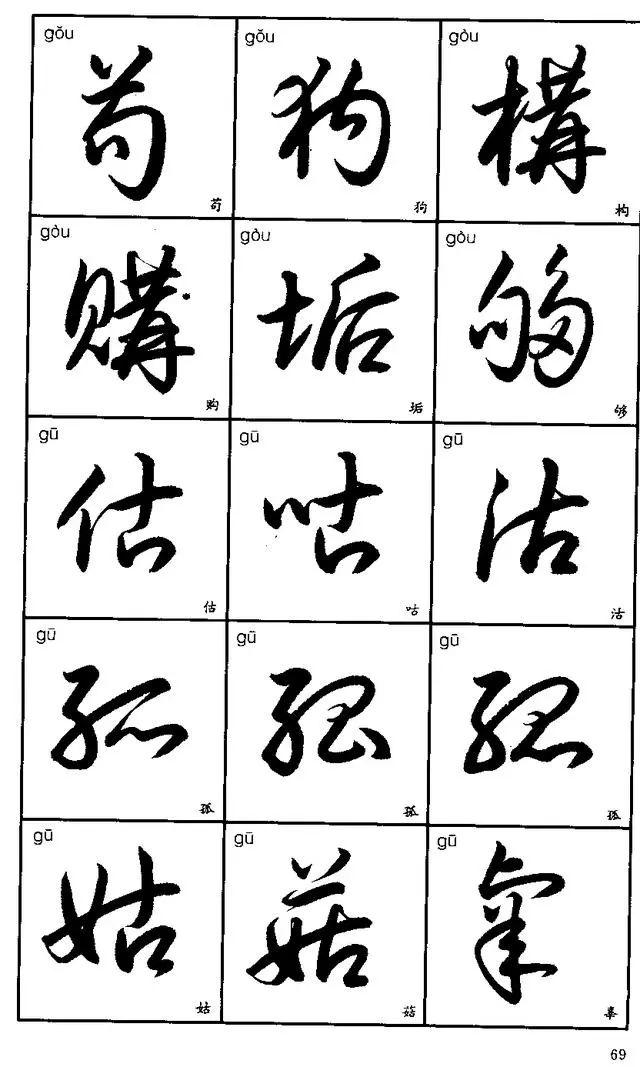 gǒu gǒu gòu
苟 狗 構
苟 狗 构
gòu gòu gòu
購 垢 够
购 垢 够
gū gū gū
估 咕 沽
估 咕 沽
gū gū gū
孤 孤 孤
孤 孤 孤
gū gū gū
姑 菇 辜
姑 菇 辜
69